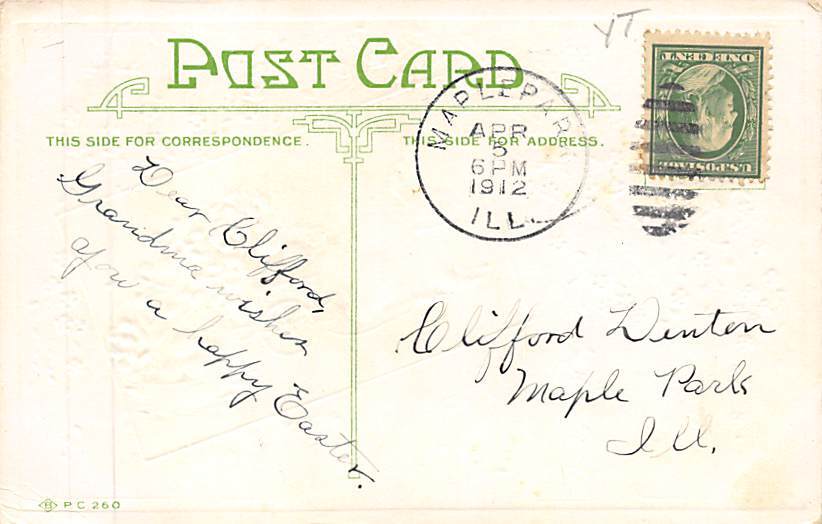 YT
POST CARD
THIS SIDE FOR CORRESPONDENCE.
THIS SIDE FOR ADDRESS.
MAPLE PARK
APR
5
6 PM
1912
ILL.
U.S. POSTAGE
ONE CENT
Dear Clifford,
Grandma wishes
you a happy
Easter.
Clifford Denton
Maple Park
Ill.
B P C 260